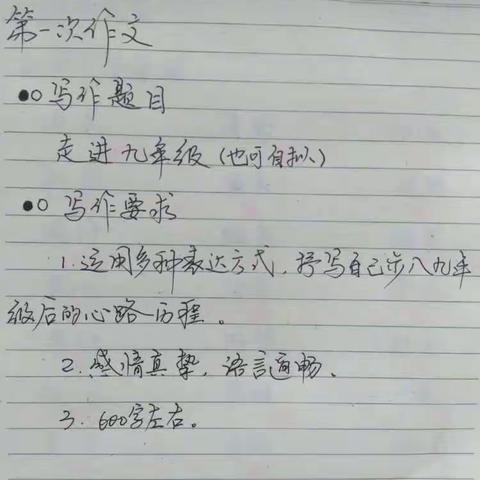 第一次作文
●○ 写作题目
走进九年级(也可自拟)
●○ 写作要求
1.运用多种表达方式,抒写自己步入九年
级后的心路历程。
2.感情真挚,语言通畅。
3. 600字左右。